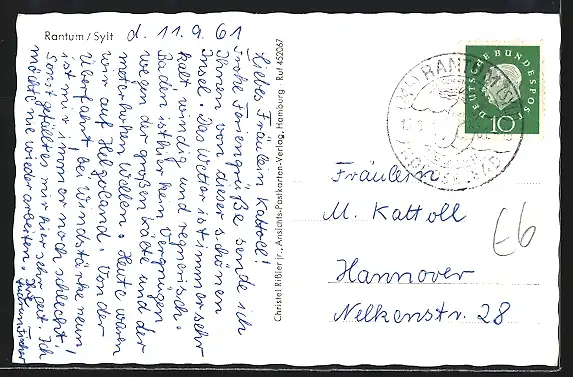 Rantum / Sylt
d. 11.9.61
Liebes Fräulein Kattoll!
Frohe Feriengrüße sende ich
Ihnen von dieser schönen
Insel. Das Wetter ist immer sehr
kalt windig und regnerisch.
Baden ist hier kein Vergnügen
wegen der großen Kälte und der
meterhohen Wellen. Heute waren
wir auf Helgoland. Von der
Überfahrt bei Windstärke neun
ist mir immer noch schlecht!
Sonst gefällt es mir hier sehr gut. Ich
möchte nie wieder arbeiten. Ihre
Fischer
Christel Rißler jr., Ansichts-Postkarten-Verlag, Hamburg, Ruf 452067
DEUTSCHE BUNDESPOST
10
RANTUM (SYLT)
NORDSEEBAD
Fräulein
M. Kattoll
Hannover
Nelkenstr. 28
E6